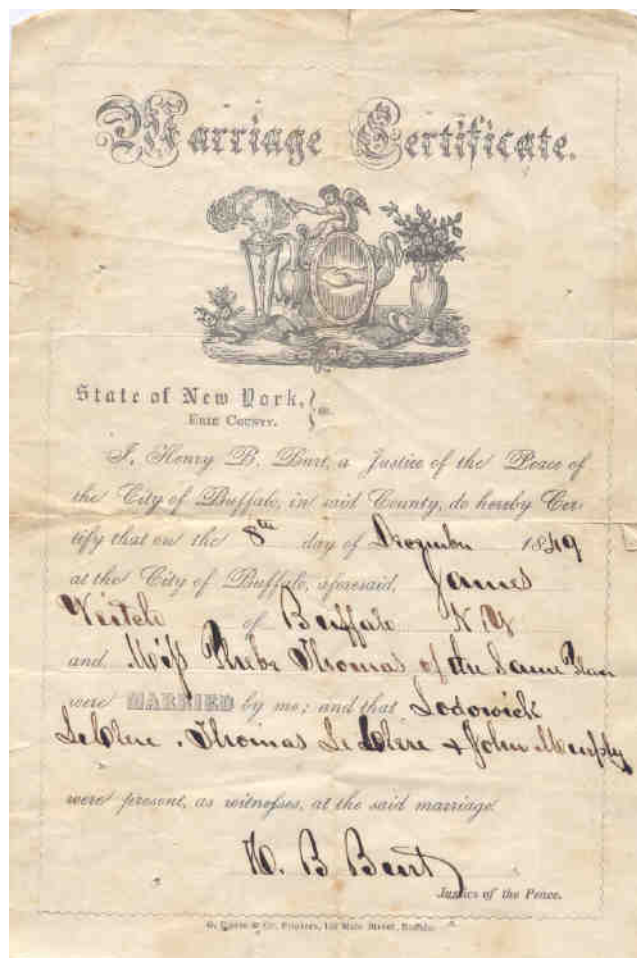 Marriage Certificate.
State of New York,
Erie County. } ss.
I, Henry B. Burt, a Justice of the Peace of
the City of Buffalo, in said County, do hereby Cer-
tify that on the 8th day of December 1849
at the City of Buffalo, aforesaid, James
of Buffalo N. Y
and Miss Phebe Thomas of the Same Place
were MARRIED by me; and that Lodowick
LeClere, Thomas LeClere & John Murphy
were present, as witnesses, at the said marriage.
H. B Burt
Justice of the Peace.
& Co. Printers, Main Street, Buffalo.